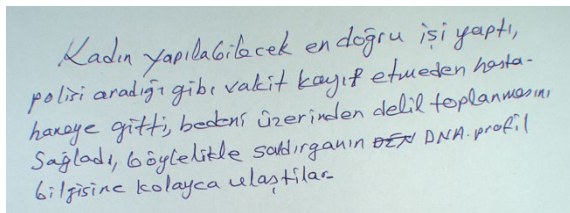 Kadın yapılabilecek en doğru işi yaptı,
polisi aradığı gibi vakit kayıp etmeden hasta-
haneye gitti, bedeni üzerinden delil toplanmasını
sağladı, böylelikle saldırganın DEN DNA profil
bilgisine kolayca ulaştılar.